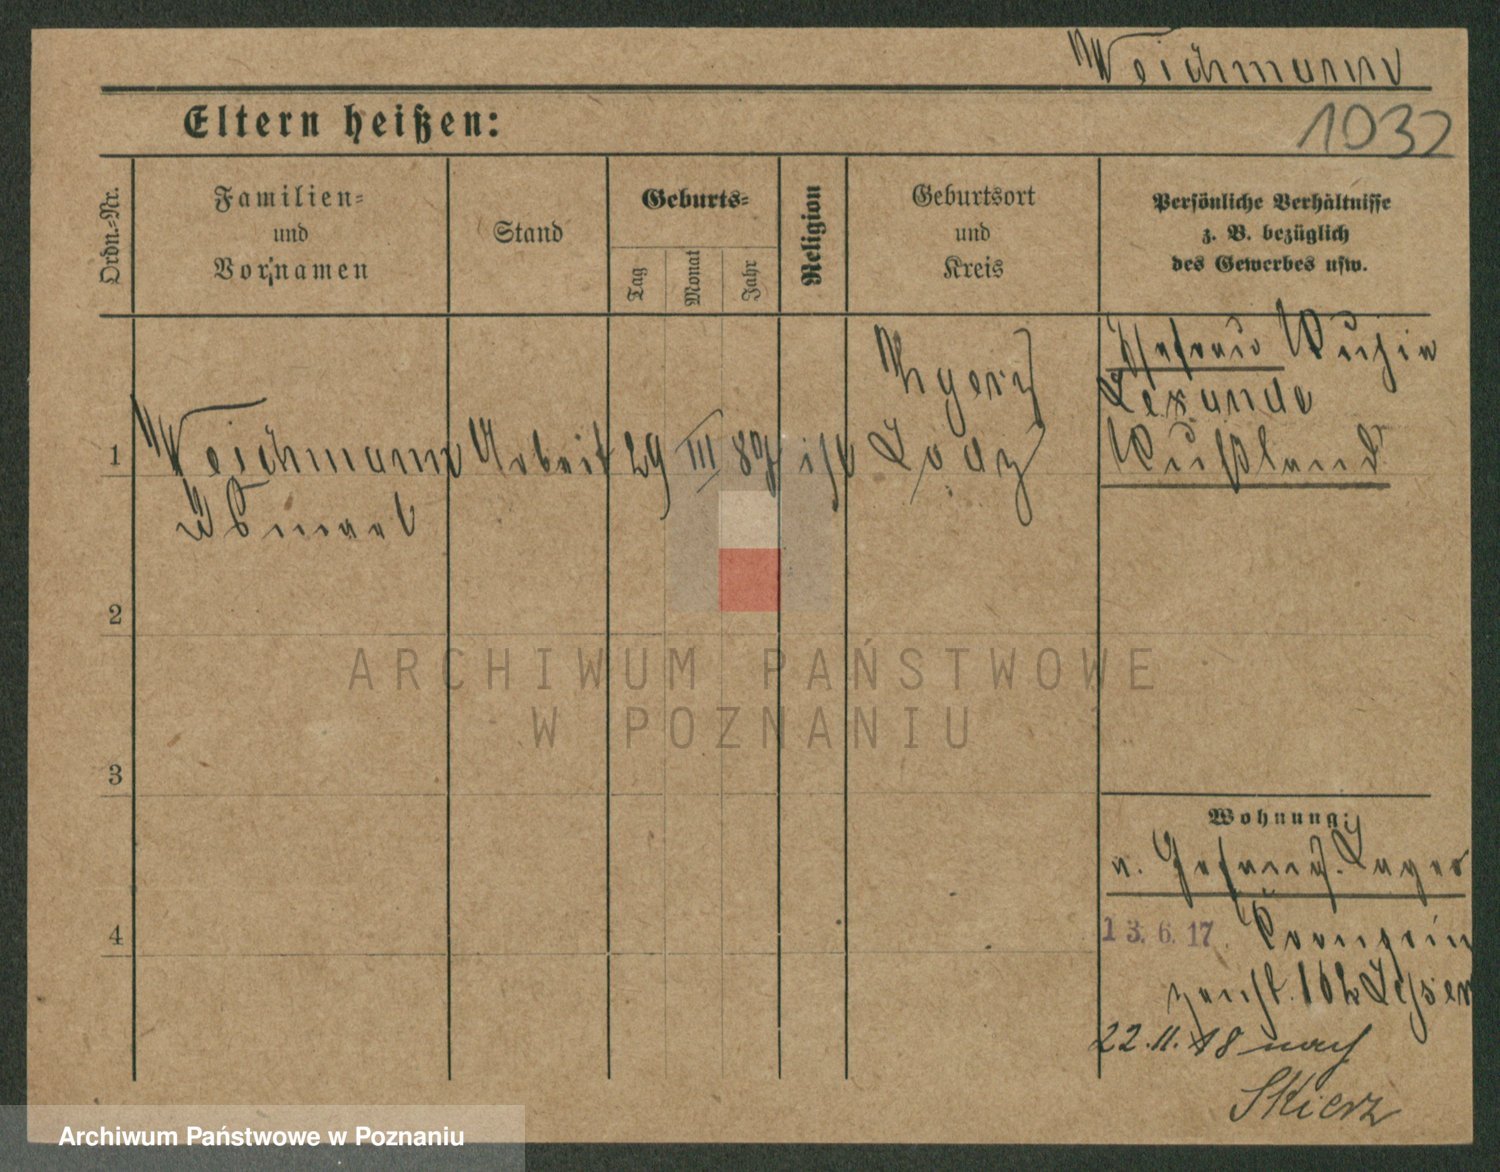 Weichmann
Eltern heißen:
1032
Ordn.-Nr.
Familien-
und
Vornamen
Stand
Geburts-
Tag
Monat
Jahr
Religion
Geburtsort
und
Kreis
Persönliche Verhältnisse
z. B. bezüglich
des Gewerbes usw.
1
Weichmann
Arbeit
29
III
89
isr
Zgierz
Lodz
Ehefrau
Rußland
2
3
4
Wohnung:
n. Gefang. Lager
13. 6. 17.
Lessen
22. 11. 18 nach
Skierz
ARCHIWUM PAŃSTWOWE
W POZNANIU
Archiwum Państwowe w Poznaniu